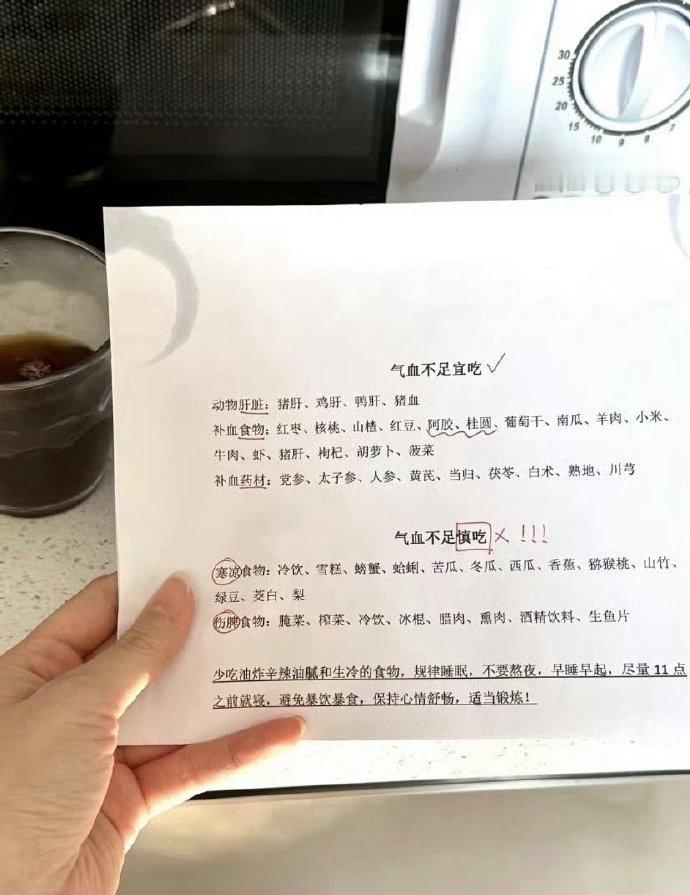 30
25
20
15
10
9
8
7
气血不足宜吃✓
动物肝脏：猪肝、鸡肝、鸭肝、猪血
补血食物：红枣、核桃、山楂、红豆、阿胶、桂圆、葡萄干、南瓜、羊肉、小米、
牛肉、虾、猪肝、枸杞、胡萝卜、菠菜
补血药材：党参、太子参、人参、黄芪、当归、茯苓、白术、熟地、川芎
气血不足慎吃×!!!
寒凉食物：冷饮、雪糕、螃蟹、蛤蜊、苦瓜、冬瓜、西瓜、香蕉、猕猴桃、山竹、
绿豆、茭白、梨
伤脾食物：腌菜、榨菜、冷饮、冰棍、腊肉、熏肉、酒精饮料、生鱼片
少吃油炸辛辣油腻和生冷的食物，规律睡眠，不要熬夜，早睡早起，尽量 11 点
之前就寝，避免暴饮暴食，保持心情舒畅，适当锻炼！